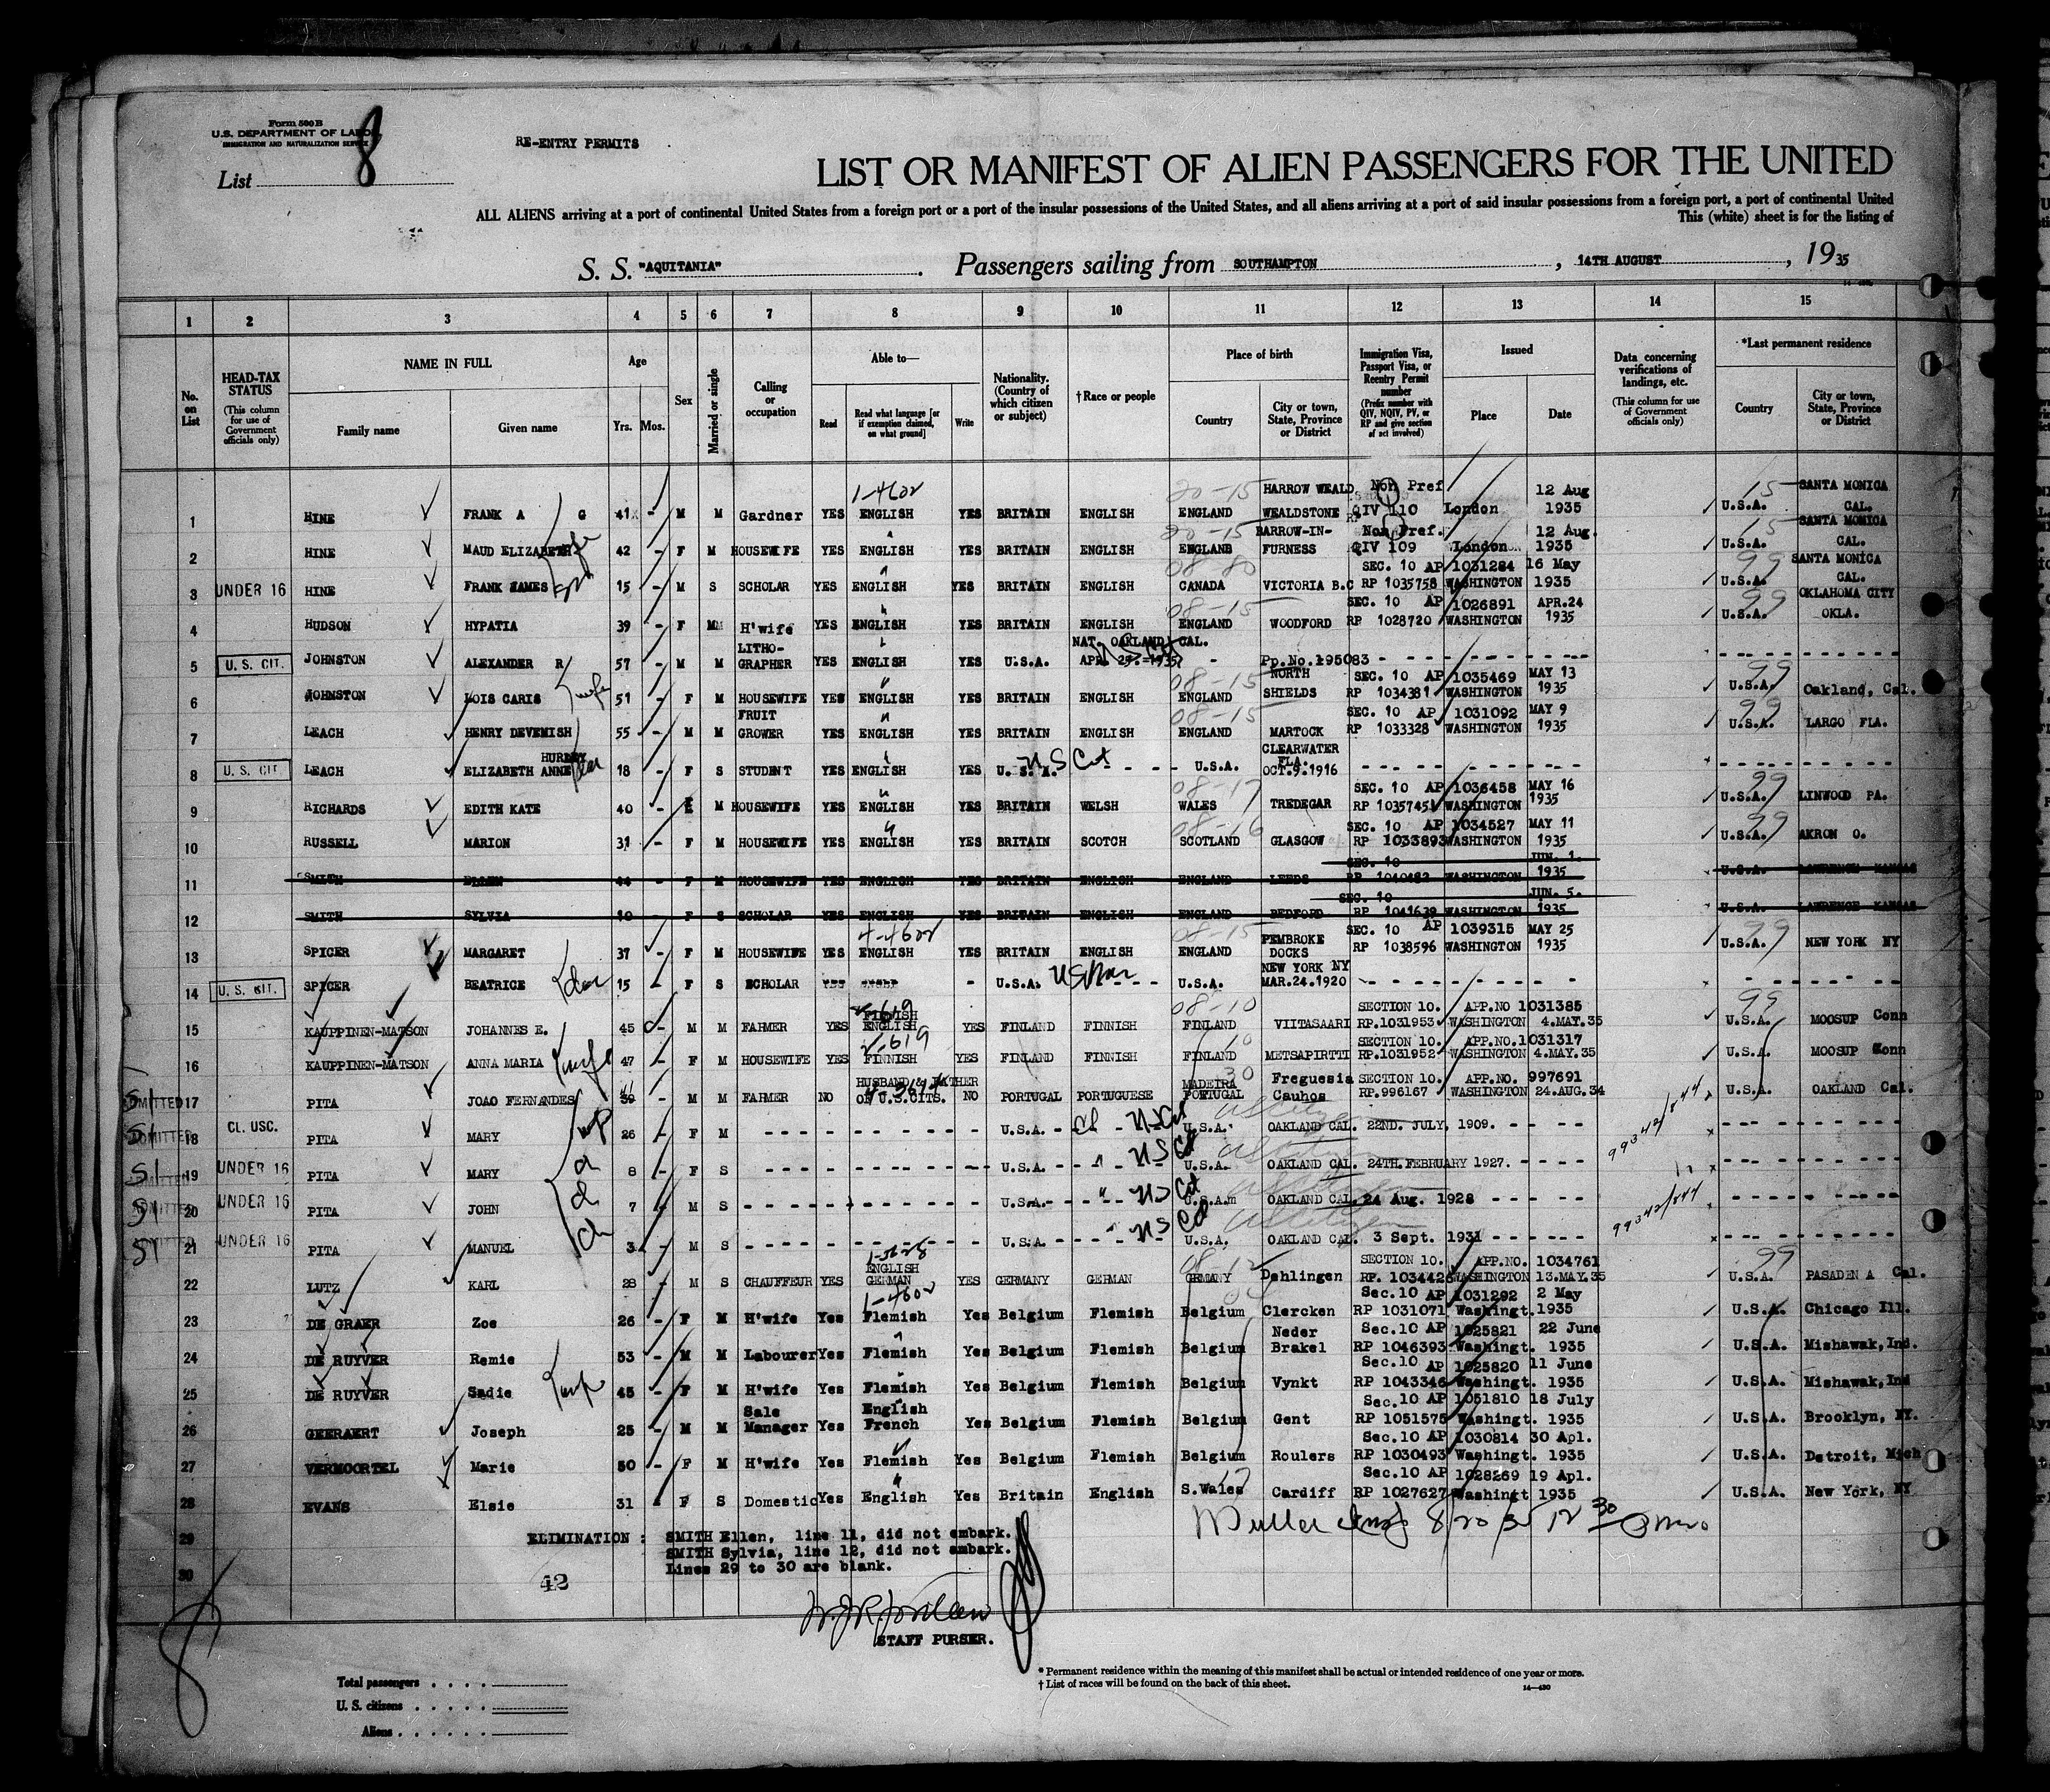 Form 500B
U.S. DEPARTMENT OF LABOR
IMMIGRATION AND NATURALIZATION SERVICE
RE-ENTRY PERMITS
List 8
LIST OR MANIFEST OF ALIEN PASSENGERS FOR THE UNITED
ALL ALIENS arriving at a port of continental United States from a foreign port or a port of the insular possessions of the United States, and all aliens arriving at a port of said insular possessions from a foreign port, a port of continental United
This (white) sheet is for the listing of
S. S. "AQUITANIA" Passengers sailing from SOUTHAMPTON, 14TH AUGUST, 1935
1 2 3 4 5 6 7 8 9 10 11 12 13 14 15
No. on List
HEAD-TAX STATUS (This column for use of Government officials only)
NAME IN FULL Family name Given name
Age Yrs. Mos.
Sex
Married or single
Calling or occupation
Able to— Read Read what language [or if exemption claimed, on what ground] Write
Nationality. (Country of which citizen or subject)
†Race or people
Place of birth Country City or town, State, Province or District
Immigration Visa, Passport Visa, or Reentry Permit number (Prefix number with QIV, NQIV, PV, or RP and give section of act involved)
Issued Place Date
Data concerning verifications of landings, etc. (This column for use of Government officials only)
*Last permanent residence Country City or town, State, Province or District
1 HINE FRANK A G 41 - M M Gardner YES 1-4602 ENGLISH YES BRITAIN ENGLISH 20-15 ENGLAND HARROW WEALD WEALDSTONE Non Pref QIV 110 London 12 Aug 1935 15 U.S.A. SANTA MONICA CAL.
2 HINE MAUD ELIZABETH wife 42 - F M HOUSEWIFE YES ENGLISH YES BRITAIN ENGLISH 20-15 ENGLAND BARROW-IN-FURNESS Non Pref. QIV 109 London 12 Aug. 1935 15 U.S.A. SANTA MONICA CAL.
3 UNDER 16 HINE FRANK JAMES 15 - M S SCHOLAR YES ENGLISH YES BRITAIN ENGLISH 08-80 CANADA VICTORIA B.C SEC. 10 AP 1031284 RP 1035758 WASHINGTON 16 May 1935 99 U.S.A. SANTA MONICA CAL.
4 HUDSON HYPATIA 39 - F M H'wife YES ENGLISH YES BRITAIN ENGLISH 08-15 ENGLAND WOODFORD SEC. 10 AP 1026891 RP 1028720 WASHINGTON APR.24 1935 99 U.S.A. OKLAHOMA CITY OKLA.
5 U. S. CIT. JOHNSTON ALEXANDER R 57 - M M LITHO-GRAPHER YES ENGLISH YES U.S.A. NAT. OAKLAND CAL. APR. 29.-1935 - Pp.No.195083
6 JOHNSTON LOIS CARIS wife 51 - F M HOUSEWIFE YES ENGLISH YES BRITAIN ENGLISH 08-15 ENGLAND NORTH SHIELDS SEC. 10 AP 1035469 RP 1034381 WASHINGTON MAY 13 1935 99 U.S.A. Oakland, Cal.
7 LEACH HENRY DEVEMISH 55 - M M FRUIT GROWER YES ENGLISH YES BRITAIN ENGLISH 08-15 ENGLAND MARTOCK SEC. 10 AP 1031092 RP 1033328 WASHINGTON MAY 9 1935 99 U.S.A. LARGO FLA.
8 U. S. CIT. LEACH ELIZABETH ANNE HURLEY dar 18 - F S STUDENT YES ENGLISH YES U. S. A. US Cit U.S.A. CLEARWATER FLA. OCT.9.1916
9 RICHARDS EDITH KATE 40 - F M HOUSEWIFE YES ENGLISH YES BRITAIN WELSH 08-17 WALES TREDEGAR SEC. 10 AP 1036458 RP 1035745 WASHINGTON MAY 16 1935 99 U.S.A. LINWOOD PA.
10 RUSSELL MARION 31 - F M HOUSEWIFE YES ENGLISH YES BRITAIN SCOTCH 08-16 SCOTLAND GLASGOW SEC. 10 AP 1034527 RP 1033893 WASHINGTON MAY 11 1935 99 U.S.A. AKRON O.
11 SMITH ELLEN 44 - F M HOUSEWIFE YES ENGLISH YES BRITAIN ENGLISH ENGLAND LEEDS SEC. 10 RP 1040482 WASHINGTON JUN. 1. 1935 U.S.A. LAWRENCE KANSAS
12 SMITH SYLVIA 10 - F S SCHOLAR YES ENGLISH YES BRITAIN ENGLISH ENGLAND BEDFORD SEC. 10 RP 1041639 WASHINGTON JUN. 5. 1935 U.S.A. LAWRENCE KANSAS
13 SPICER MARGARET 37 - F M HOUSEWIFE YES 4-4602 ENGLISH YES BRITAIN ENGLISH 08-15 ENGLAND PEMBROKE DOCKS SEC. 10 AP 1039315 RP 1038596 WASHINGTON MAY 25 1935 99 U.S.A. NEW YORK NY
14 U. S. CIT. SPICER BEATRICE dar 15 - F S SCHOLAR YES - U.S.A. U.S.A. NEW YORK NY MAR.24.1920
15 KAUPPINEN-MATSON JOHANNES E. 45 - M M FARMER YES FINNISH ENGLISH YES FINLAND FINNISH 08-10 FINLAND VIITASAARI SECTION 10. APP.NO 1031385 RP.1031953 WASHINGTON 4.MAY.35 99 U.S.A. MOOSUP Conn
16 KAUPPINEN-MATSON ANNA MARIA wife 47 - F M HOUSEWIFE YES FINNISH YES FINLAND FINNISH 10 FINLAND METSAPIRTTI SECTION 10. APP.NO.1031317 RP.1031952 WASHINGTON 4.MAY.35 U.S.A. MOOSUP Conn
17 ADMITTED PITA JOAO FERNANDES 41 39 - M M FARMER NO HUSBAND & FATHER OF U.S.CITS. NO PORTUGAL PORTUGUESE 30 MADEIRA PORTUGAL Freguesia Cauhos SECTION 10. APP.NO. 997691 RP.996167 WASHINGTON 24.AUG.34 U.S.A. OAKLAND Cal.
18 ADMITTED CL. USC. PITA MARY 26 - F M U.S.A. US Cit U.S.A. US citizen OAKLAND CAL. 22ND. JULY, 1909. 99342/844
19 ADMITTED UNDER 16 PITA MARY 8 - F S U.S.A. US Cit U.S.A. US citizen OAKLAND CAL. 24TH.FEBRUARY 1927.
20 ADMITTED UNDER 16 PITA JOHN 7 - M S U.S.A. US Cit U.S.A. US citizen OAKLAND CAL. 24 Aug. 1928 99342/844
21 ADMITTED UNDER 16 PITA MANUEL 3 - M S U.S.A. US Cit U.S.A. US citizen OAKLAND CAL. 3 Sept. 1931
22 LUTZ KARL 28 - M S CHAUFFEUR YES ENGLISH GERMAN YES GERMANY GERMAN GRMANY Dehlingen SECTION 10. APP.NO. 1034761 RP. 1034426 WASHINGTON 13.MAY.35 99 U.S.A. PASADEN A Cal.
23 DE GRAER Zoe 26 - F M H'wife Yes 1-4602 Flemish Yes Belgium Flemish Belgium Clercken Sec.10 AP 1031292 RP 1031071 Washingt. 2 May 1935 U.S.A. Chicago Ill.
24 DE RUYVER Remie 53 - M M Labourer Yes Flemish Yes Belgium Flemish Belgium Neder Brakel Sec.10 AP 1025821 RP 1046393 Washingt. 22 June 1935 U.S.A. Mishawak, Ind.
25 DE RUYVER Sadie wife 45 - F M H'wife Yes Flemish Yes Belgium Flemish Belgium Vynkt Sec.10 AP 1025820 RP 1043346 Washingt. 11 June 1935 U.S.A. Mishawak, Ind
26 GEERAERT Joseph 25 - M M Sale Manager Yes English French Yes Belgium Flemish Belgium Gent Sec.10 AP 1051810 RP 1051575 Washingt. 18 July 1935 U.S.A. Brooklyn, NY.
27 VERMOORTEL Marie 50 - F M H'wife Yes Flemish Yes Belgium Flemish Belgium Roulers Sec.10 AP 1030814 RP 1030493 Washingt. 30 Apl. 1935 U.S.A. Detroit, Mich
28 EVANS Elsie 31 - F S Domestic Yes English Yes Britain English 17 S.Wales Cardiff Sec.10 AP 1028269 RP 1027627 Washingt 19 Apl. 1935 U.S.A. New York, NY
29 ELIMINATION : SMITH Ellen, line 11, did not embark.
SMITH Sylvia, line 12, did not embark.
30 Lines 29 to 30 are blank.
42
STAFF PURSER.
8
Total passengers
U. S. citizens
Aliens
* Permanent residence within the meaning of this manifest shall be actual or intended residence of one year or more.
† List of races will be found on the back of this sheet.
14—430